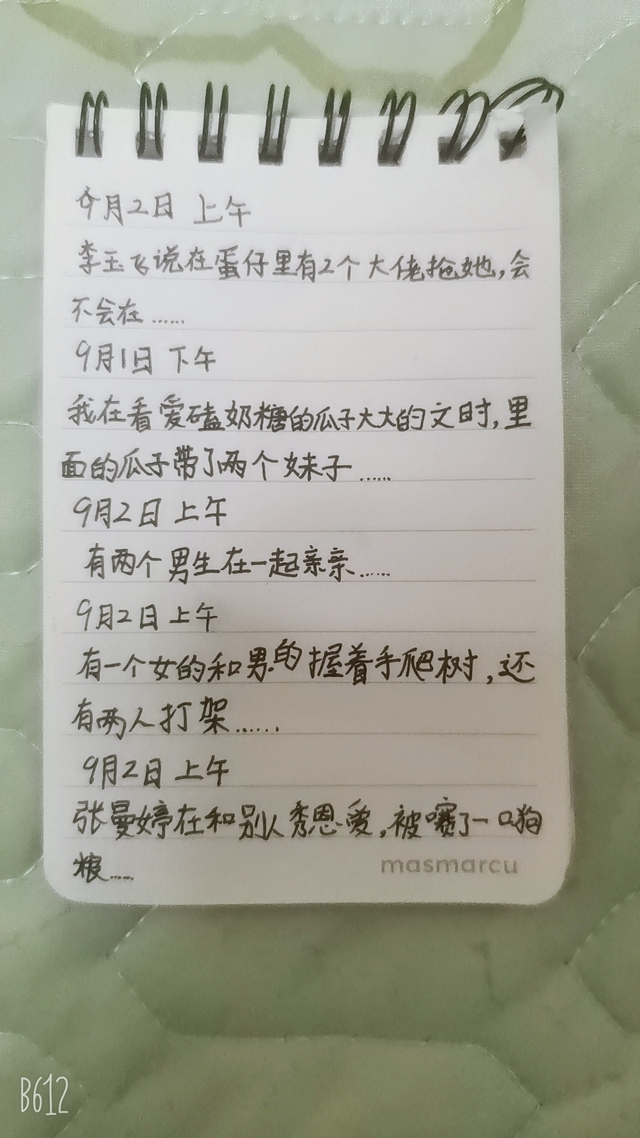 9月2日 上午
李玉飞说在蛋仔里有2个大佬抢她,会
不会在……
9月1日 下午
我在看爱磕奶糖的瓜子大大的文时,里
面的瓜子带了两个妹子……
9月2日 上午
有两个男生在一起亲亲……
9月2日 上午
有一个女的和男的握着手爬树,还
有两人打架……
9月2日 上午
张曼婷在和别人秀恩爱,被噻了一口狗
粮……
masmarcu
B612